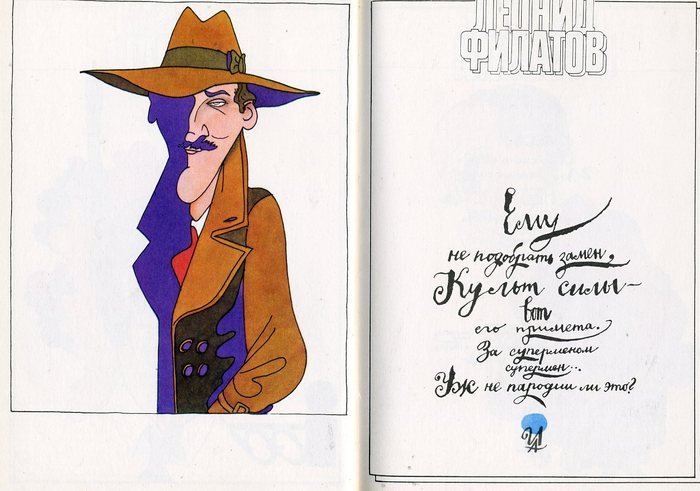 ЛЕОНИД
ФИЛАТОВ
Ему
не подобрать замен,
Культ силы –
вот
его примета.
За суперменом
супермен...
Уж не пародии ли это?